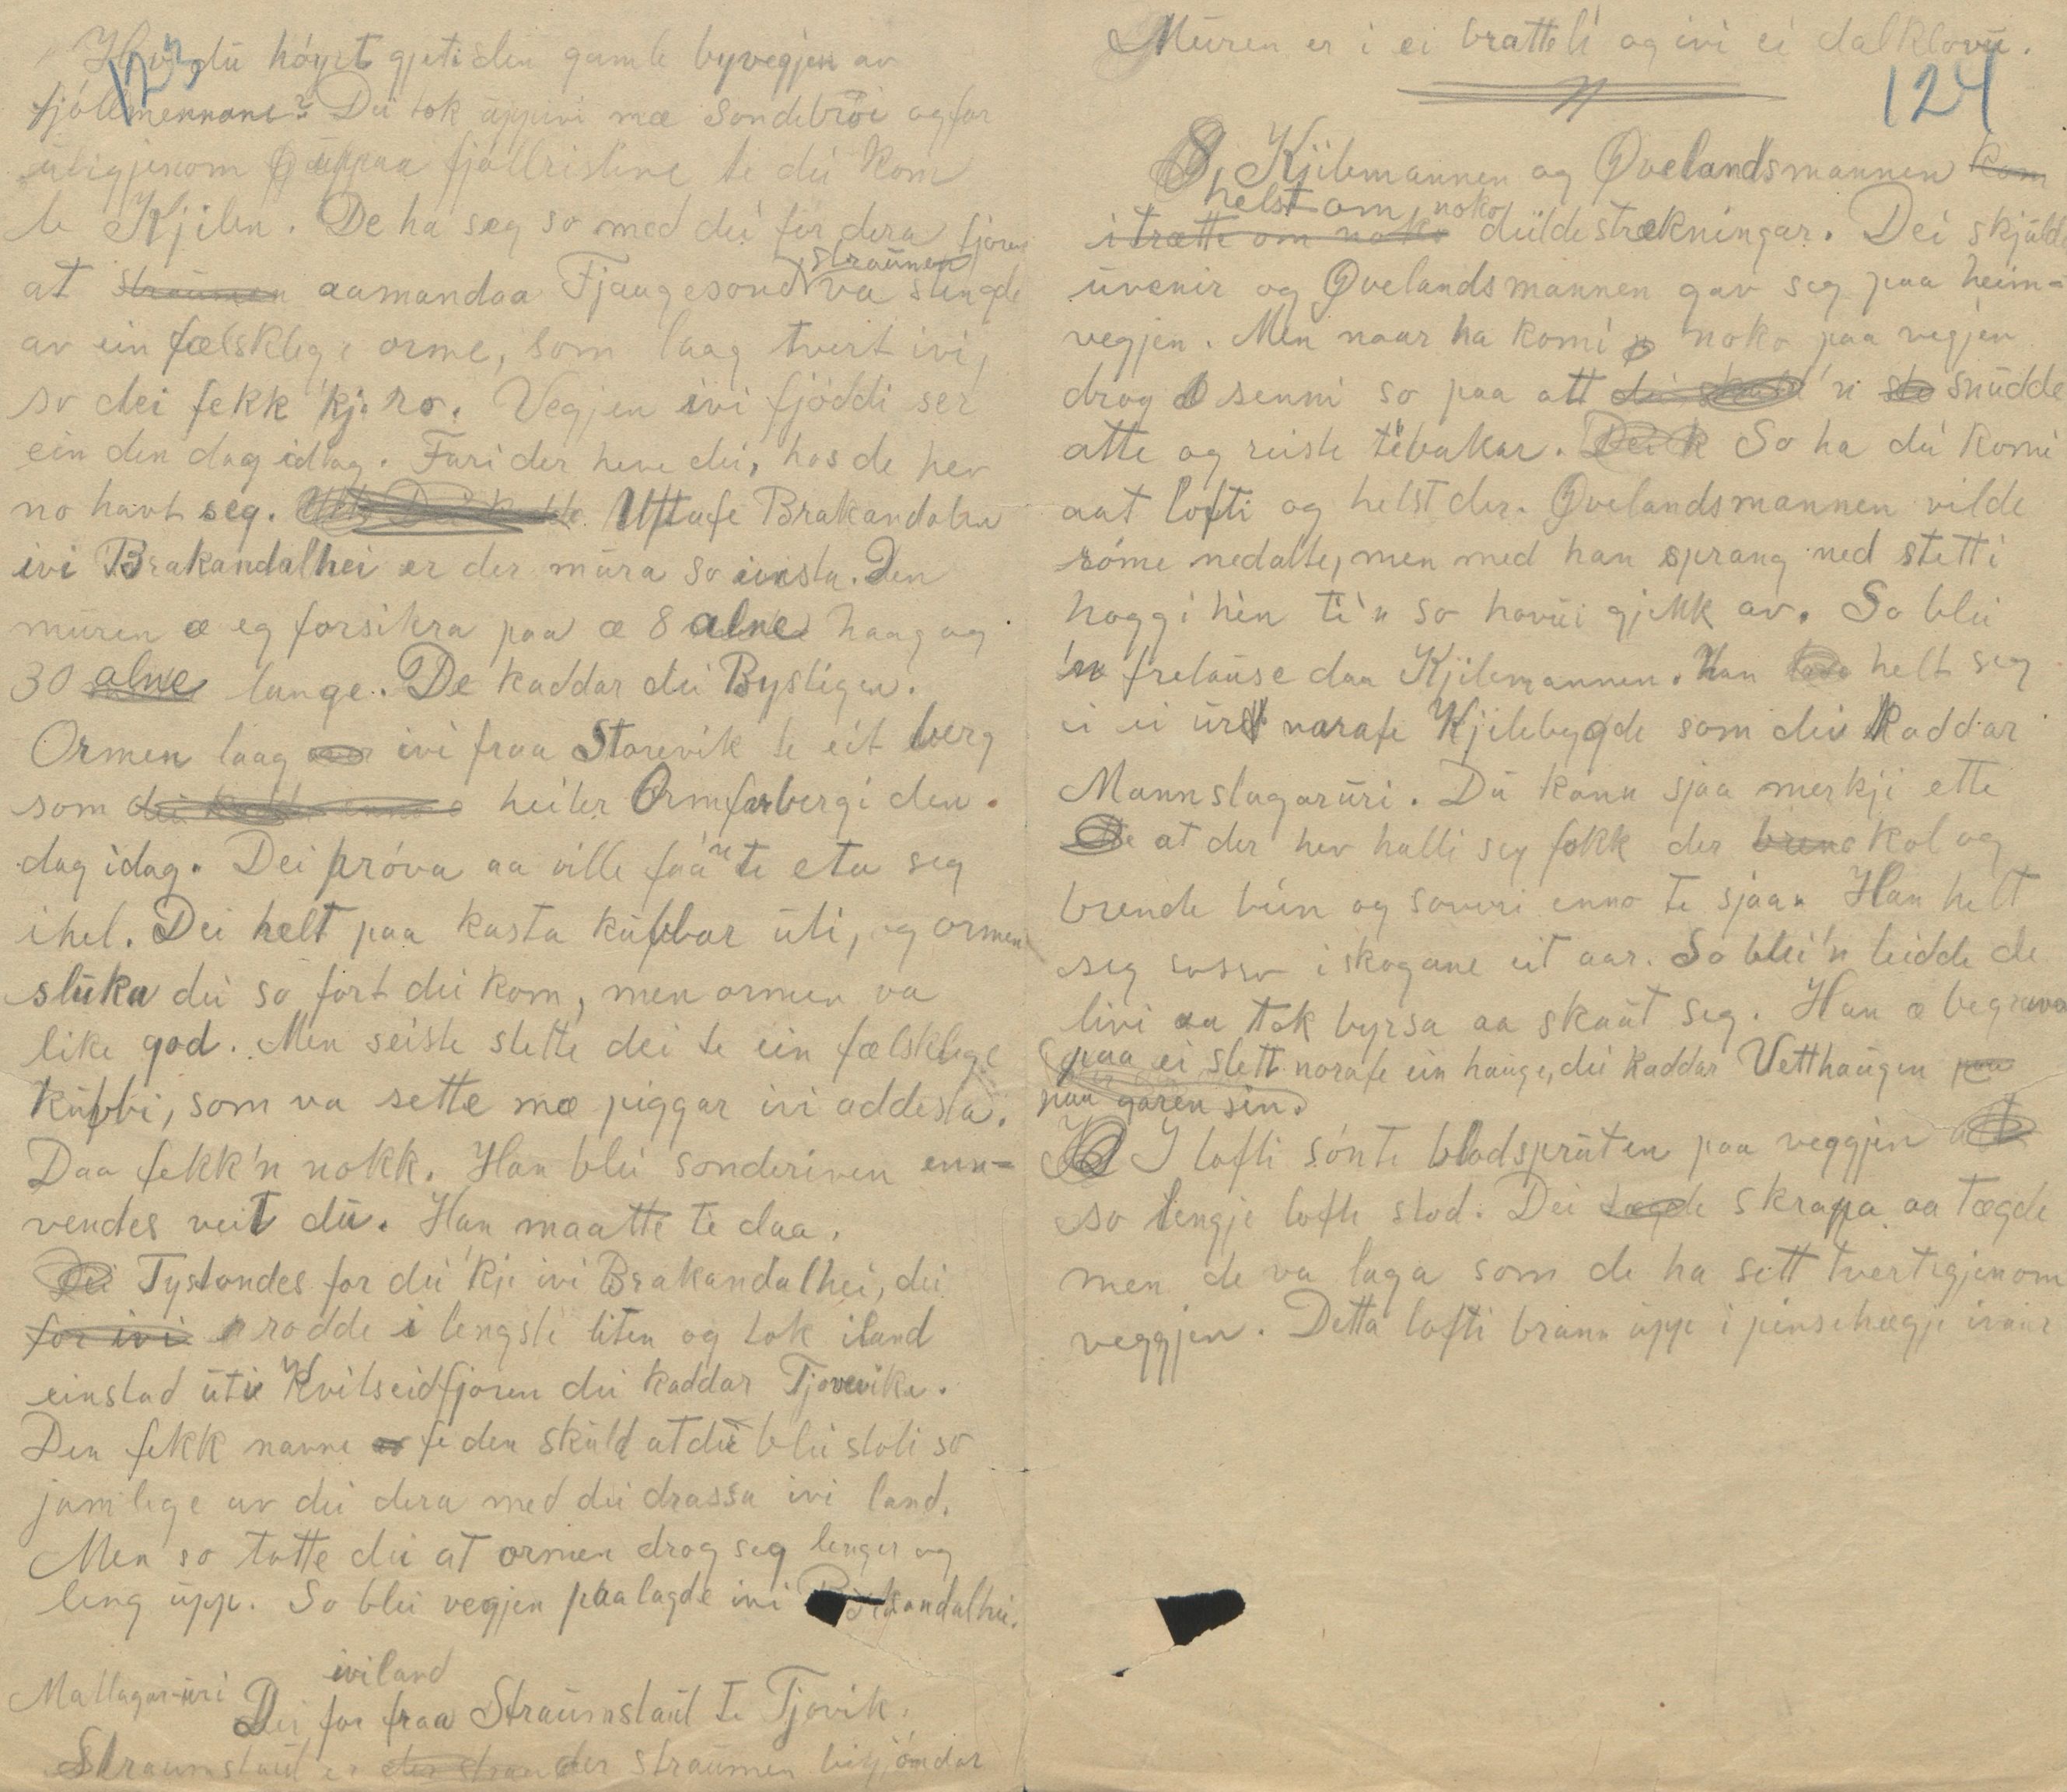 123
Hev du höyrt gjeti den gamle byvegjen av
fjöllmennane? Dei tok uppivi mæ Sondebröi og for
utigjenom uppaa fjöllristene te dei kom
te Kjilen. De ha seg so med dei før dera fjøre
at straumen aamandaa Fjaagesond va stengde
av ein fælsklege orme, som laag tvert ivi,
so dei fekk 'kje ro. Vegjen ivi fjöddi ser
ein den dag idag. Fari der heve dei, hos de hev
no havt seg. Uttafe Brakandalen
ivi Brakandalhei er der mura so einsta. Den
muren æ eg forsikra paa æ 8 alne haag og
30 alne lange. De kaddar dei Bystigen.
Ormen laag ivi fraa Storevik te eit berg
som heiter Ormfarbergi den
dag idag. Dei pröva aa ville faa 'n te eta seg
ihel. Dei helt paa kasta kubbar uti, og ormen
sluka dei so fort dei kom, men ormen va
like god. Men seiste slette dei te ein fælsklege
kubbi, som va sette mæ piggar ivi addesta.
Daa fekk'n nokk. Han blei sonderiven enn-
vendes veit du. Han maatte te daa.
Tystondes for dei 'kje ivi Brakandalhei, dei
for ivi rodde i lengste liten og tok iland
einstad uti Kvitseidfjoren dei kaddar Tjovevike.
Den fekk navne fe den skuld at dei blei stoli so
jamlege av dei dera med dei drassa ivi land.
Men so totte dei at ormen drog seg lenger og
leng upp. So blei vegjen paalagde ivi Brakandalhei.
Mallagar-uri
iviland
Dei for fraa Straumstaul te Tjovik.
Straumstaul er der straumen bigjöndar
Muren er i ei bratteli og ivi ei dalklovu.
124
Kjilemannen og Øvelandsmannen kom
helst om noko
i trætte om noko deildestrekningar. Dei skjulde
uvenir og Øvelandsmannen gav seg paa heim-
vegjen. Men naar ha komi noko paa vegjen
drog senni so paa att 'n snudde
atte og reiste tebakar. So ha dei komi
aat lofti og helst der. Øvelandsmannen vilde
röme nedatte, men med han sprang ned stetti
hoggi hin ti'n so hovui gjekk av. So blei
'n frelause daa Kjilemannen. Han helt seg
i ei urd norafe Kjilebygde som dei kaddar
Mannslagaruri. Du kann sjaa merkji ette
at der hev halli seg fokk der kol og
brende bein og soveri enno te sjaa. Han helt
seg sosso i skogane eit aar. So blei'n leidde de
livi aa tok byrsa aa skaut seg. Han æ begraven
paa ei slett norafe ein hauge, dei kaddar Vetthaugen paa
paa garen sin.
I lofti sönte blodspruten paa veggjen
so lengje lofte stod. Dei tægde skrapa aa tægde
men de va laga som de ha sett tvertigjenom
veggjen. Detta lofti brann upp i pinsehægje ivaar